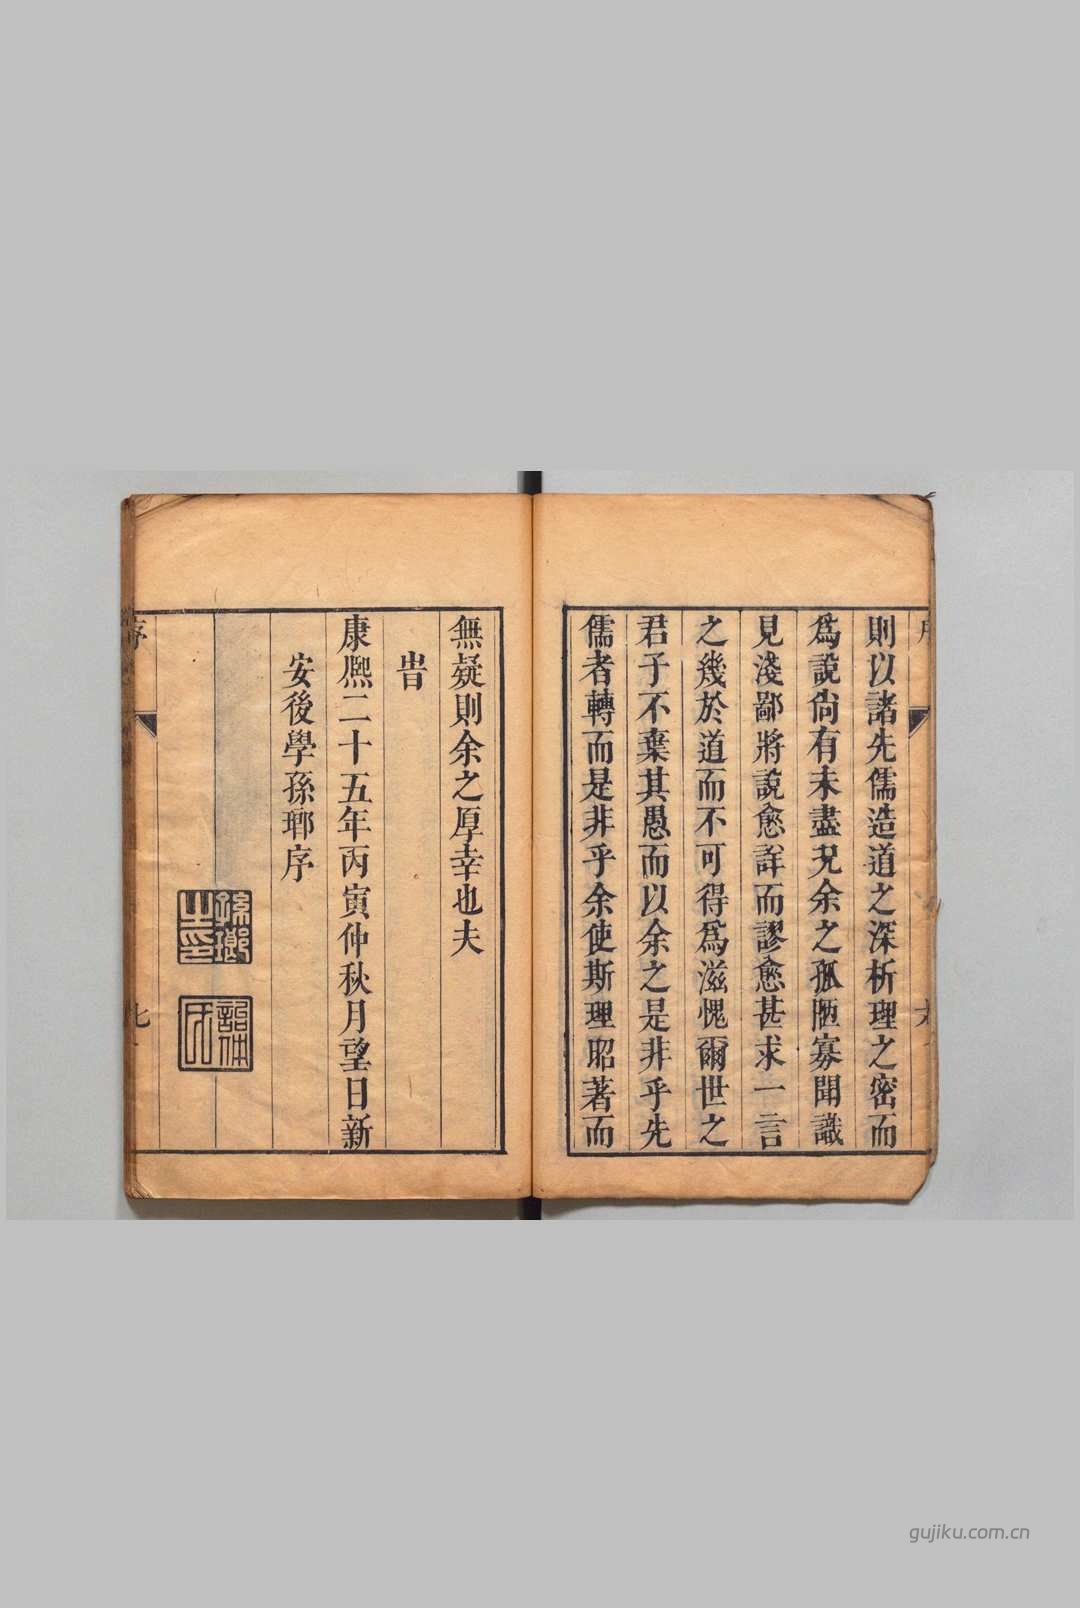 則以諸先儒造道之深析理之密而
爲說尙有未盡況余之孤陋寡聞識
見淺鄙將說愈詳而謬愈甚求一言
之幾於道而不可得爲滋愧爾世之
君子不棄其愚而以余之是非乎先
儒者轉而是非乎余使斯理昭著而
無疑則余之厚幸也夫
旹
康熈二十五年丙寅仲秋月望日新
安後學孫瑯序
孫瑯之印
序
七
gujiku.com.cn